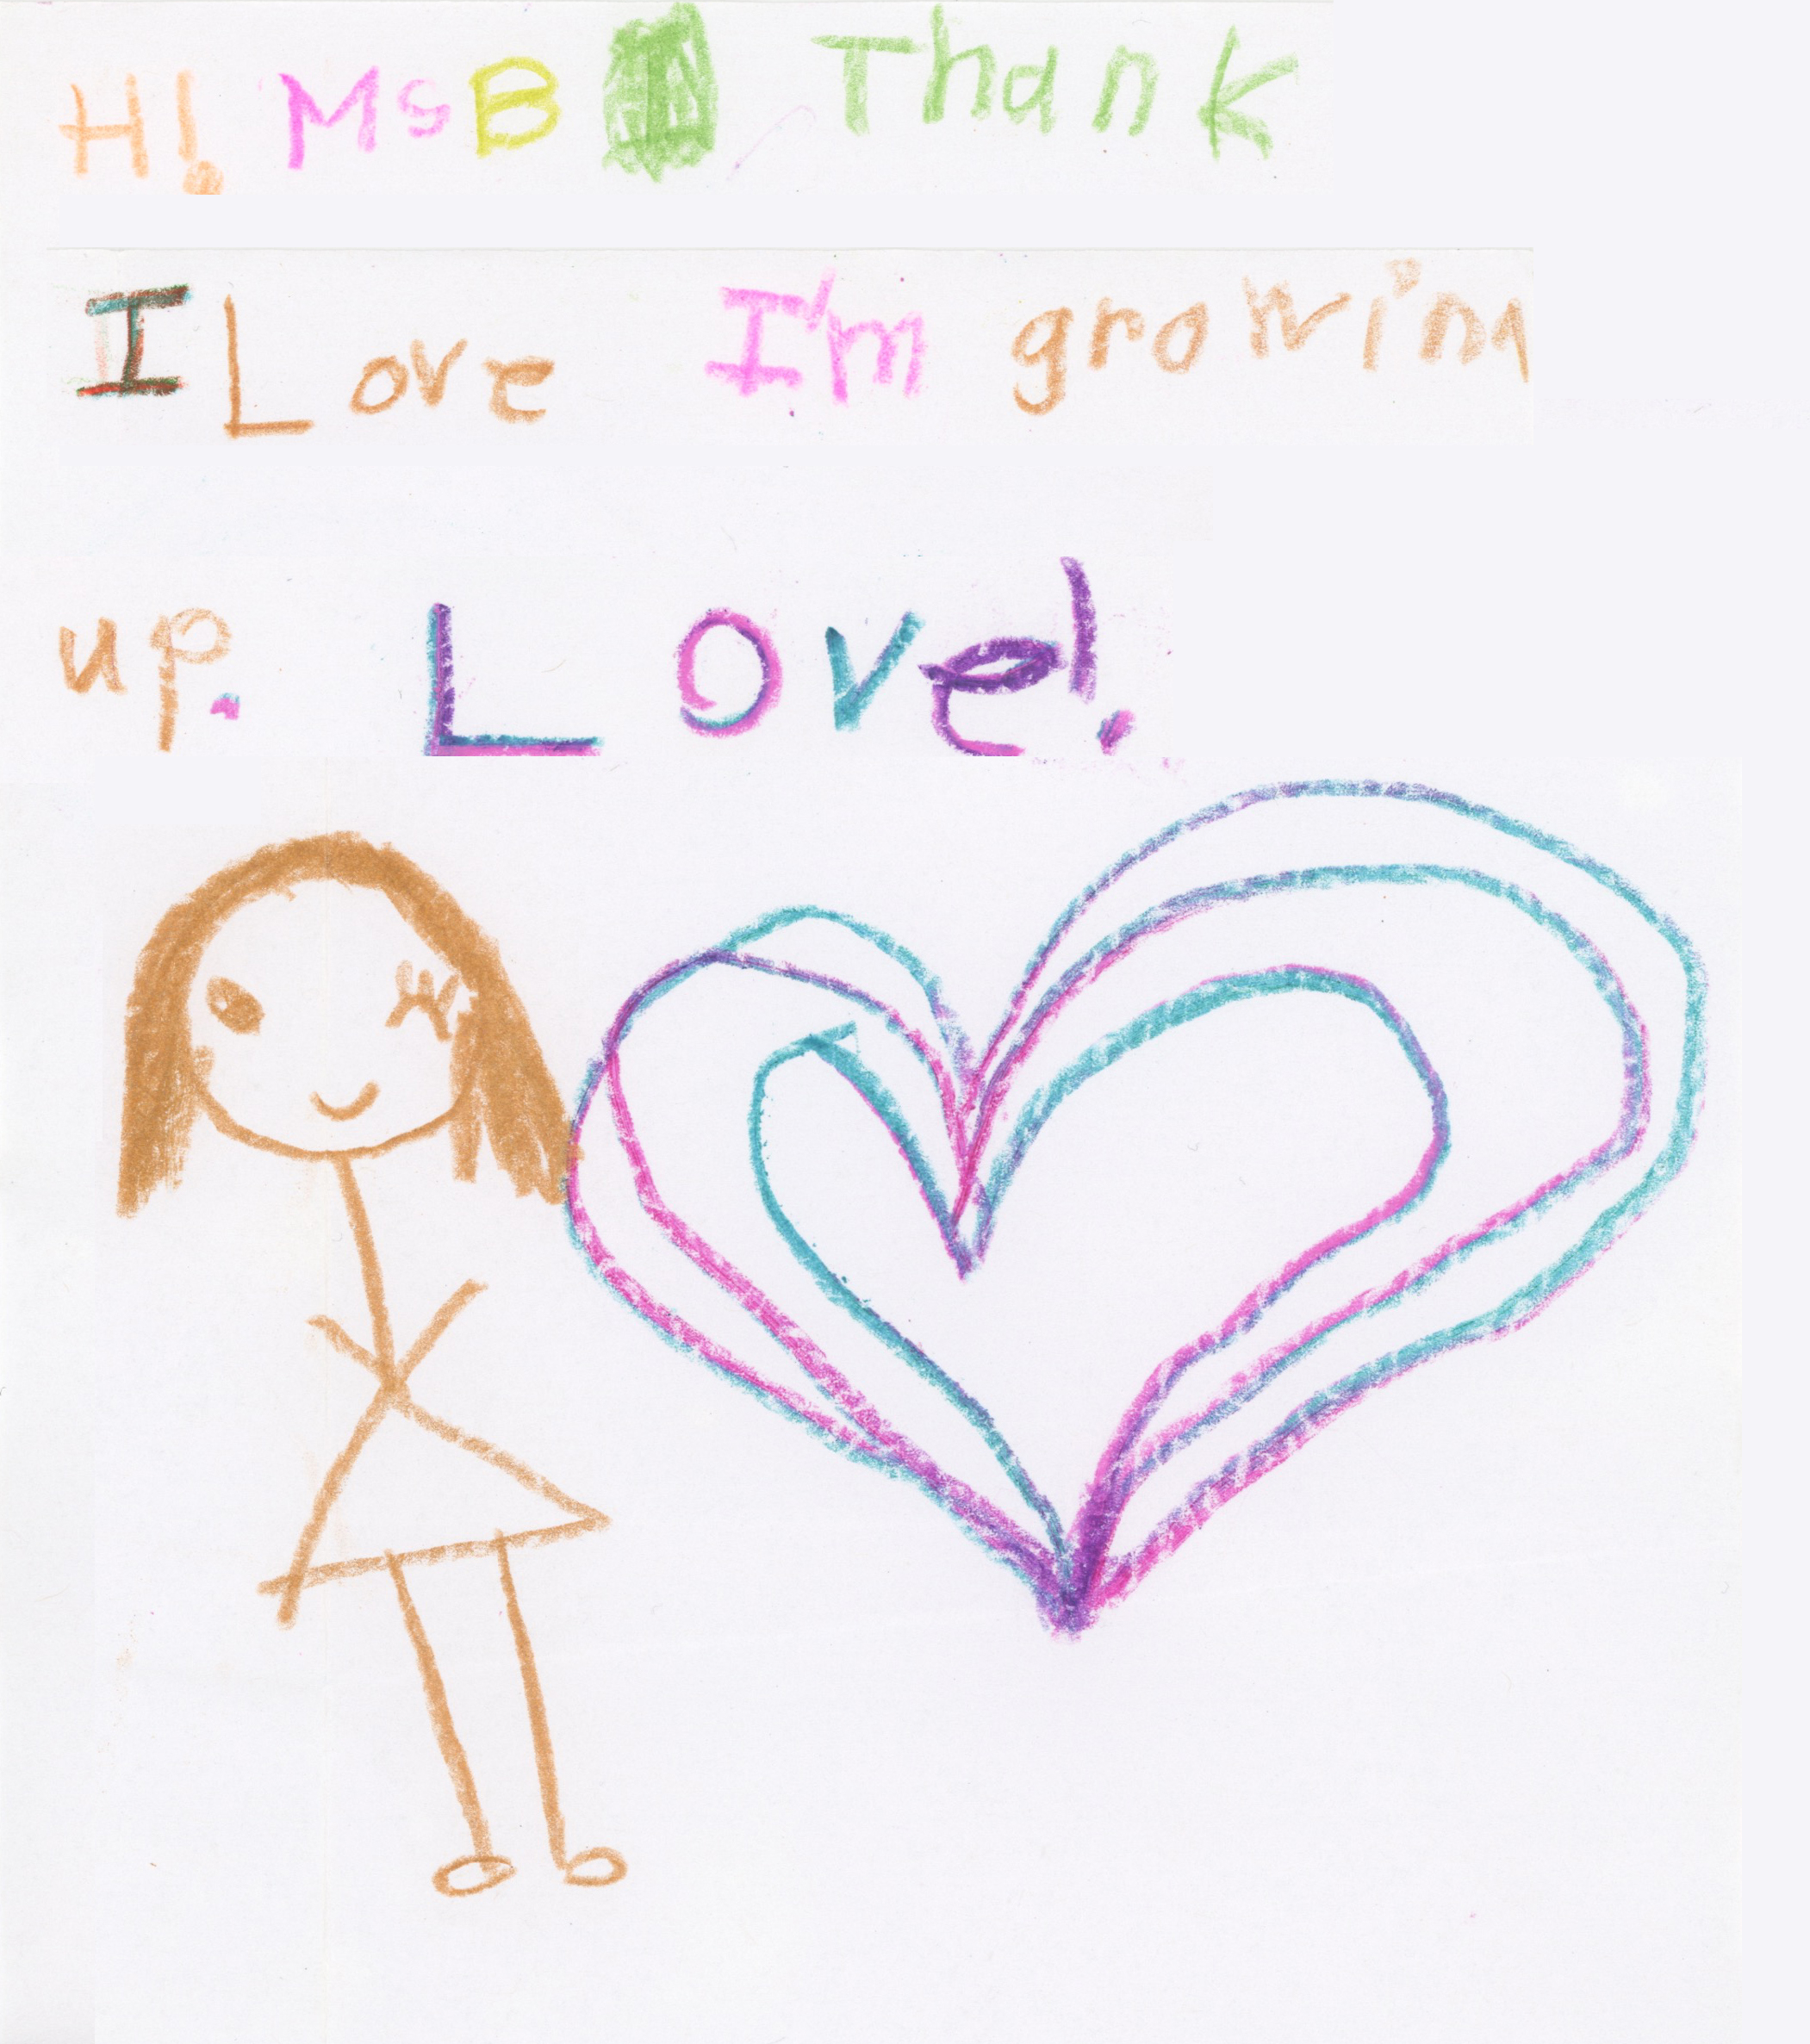 Hi! Ms B Thank
I Love I'm growin
up. Love!